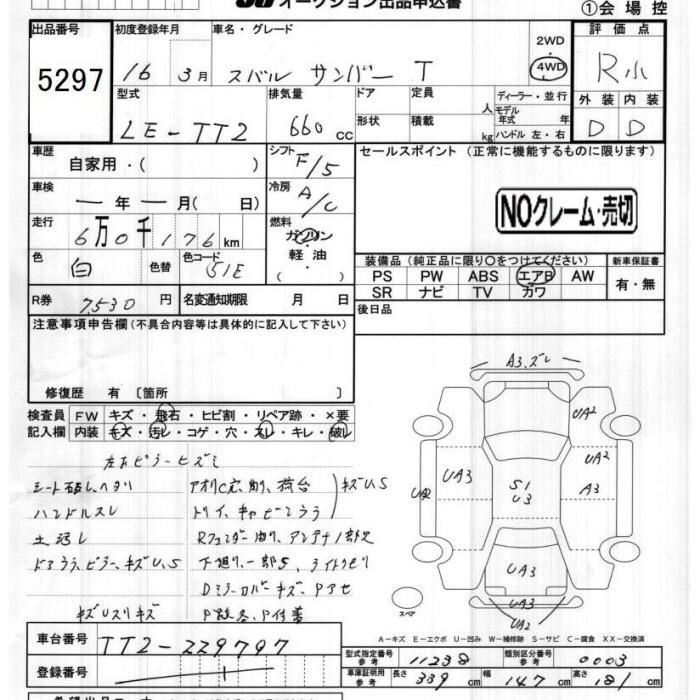 オークション出品申込書
①会場控
出品番号
5297
初度登録年月
16 3月
車名・グレード
スバル サンバー T
2WD
4WD
評価点
R小
型式
LE-TT2
排気量
660 cc
ドア
定員 人
形状
積載 kg
ディーラー・並行
モデル年式 年
ハンドル 左・右
外装 内装
D D
車歴
自家用・( )
シフト
F/5
セールスポイント (正常に機能するものに限ります)
車検
ー年ー月( 日)
冷房
A/C
NOクレーム・売切
走行
6万0千176km
燃料
ガソリン
軽油
・( )
色
白
色替
色コード
51E
装備品(純正品に限り〇をつけてください)
新車保証書
PS PW ABS エアB AW
SR ナビ TV カワ
有・無
R券
7,530円
名変通知期限 月 日
後日品
注意事項申告欄(不具合内容等は具体的に記入して下さい)
修復歴 有 〔箇所 〕
検査員 FW キズ・飛石・ヒビ割・リペア跡・×要
記入欄 内装 キズ・汚レ・コゲ・穴・スレ・キレ・破レ
左右ピラーヒズミ
シート破レ、ヘタリ
ハンドルスレ
A3、ズレ
UA2
UA2
A3
UA3
UA2
S1
U3
UA3
UA3
UA2
スペア
キズU,S
A-キズ E-エクボ U-凹み W-補修跡 S-サビ C-腐食 XX-交換済
車台番号
TT2-229797
登録番号
型式指定番号 参考 11238
類別区分番号 参考 0003
車庫証明用 参考 長さ 339 cm 幅 147 cm 高さ 181 cm